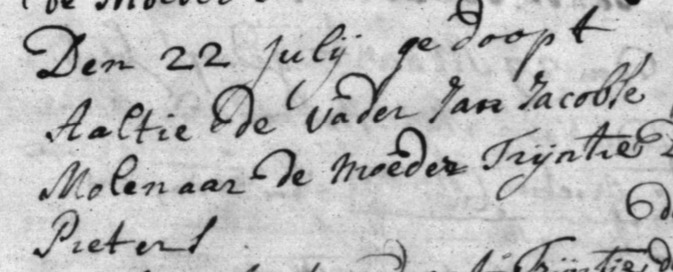 de Moeder
Den 22 Julij gedoopt
Aaltie de vader Jan Jacobse
Molenaar de moeder Trijntie
Pieters
Trijntie